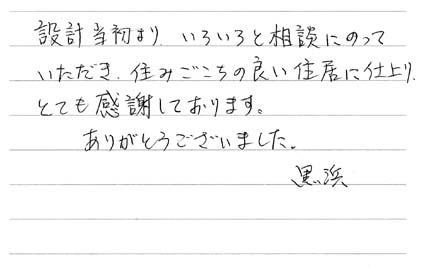 設計当初より、いろいろと相談にのって
いただき、住みごこちの良い住居に仕上り、
とても感謝しております。
ありがとうございました。
黒浜